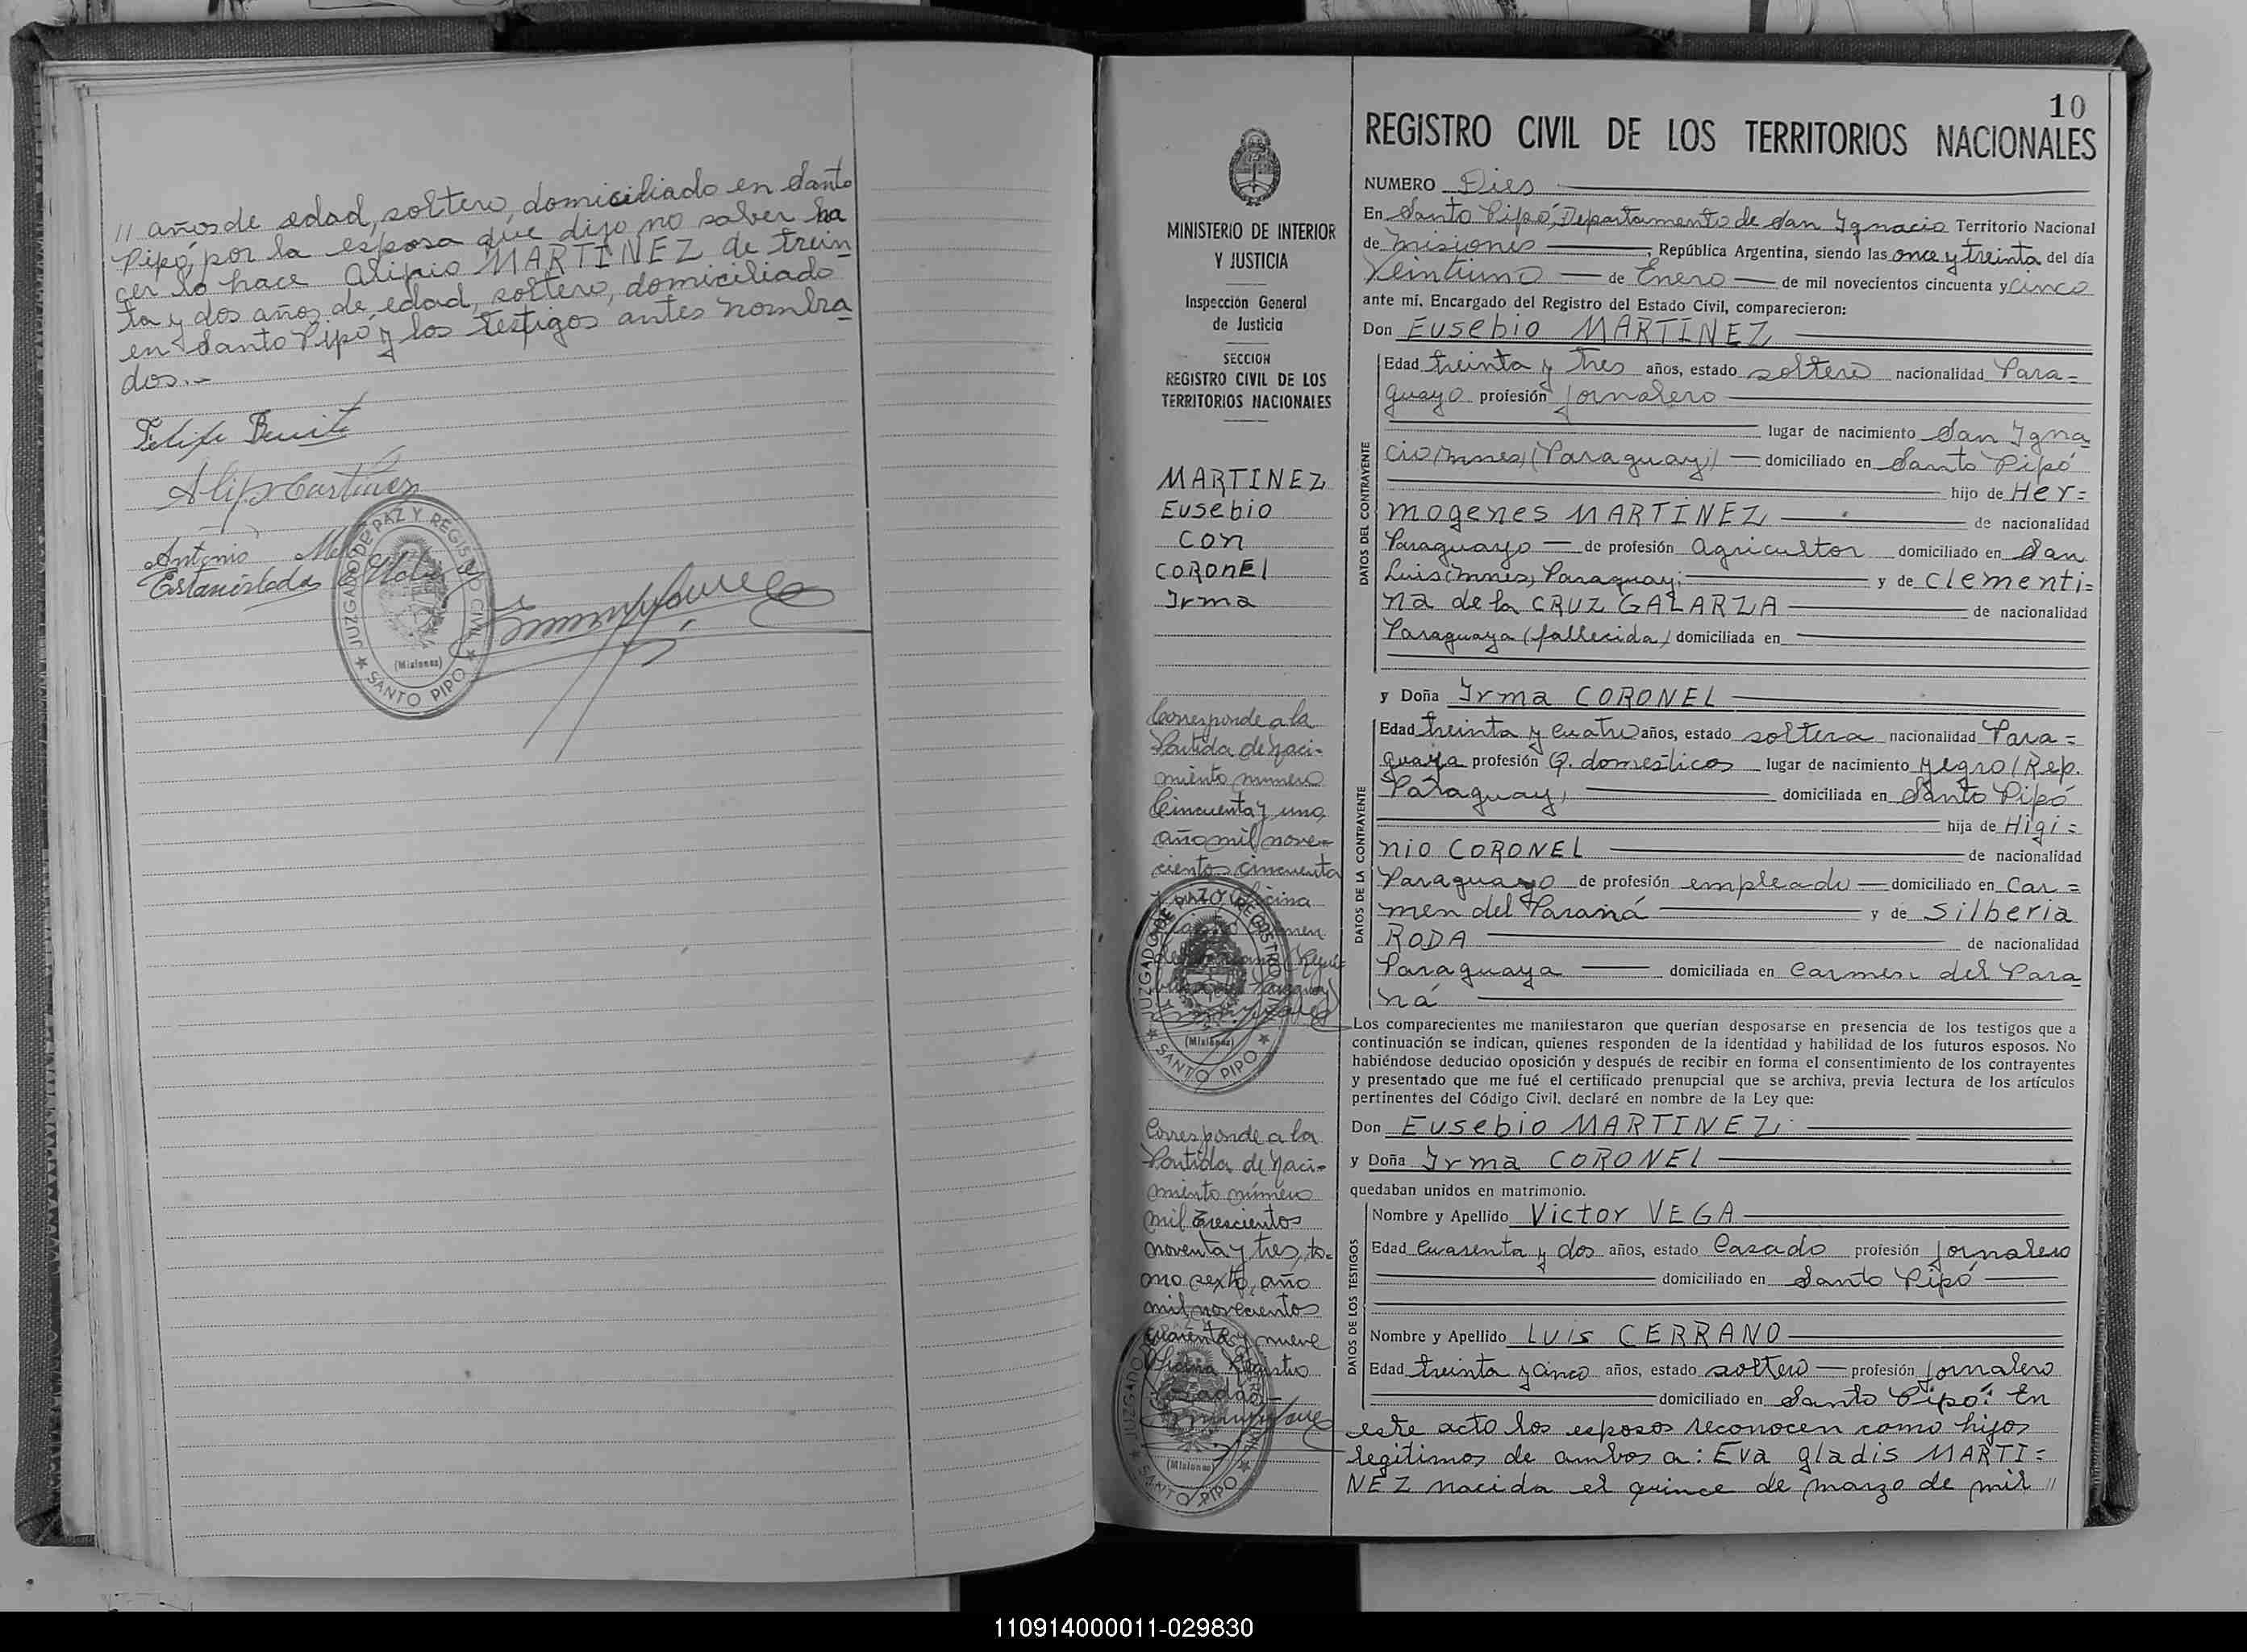 // años de edad, soltero, domiciliado en Santo
Pipó, por la esposa que dijo no saber ha
cer lo hace Alipio MARTINEZ de trein
ta y dos años de edad, soltero, domiciliado
en Santo Pipó y los testigos antes nombra
dos.-
Antonio
Estanislada
JUZGADO DE PAZ Y REGISTRO CIVIL
(Misiones)
SANTO PIPO
10
REGISTRO CIVIL DE LOS TERRITORIOS NACIONALES
MINISTERIO DE INTERIOR
Y JUSTICIA
Inspección General
de Justicia
SECCION
REGISTRO CIVIL DE LOS
TERRITORIOS NACIONALES
MARTINEZ
Eusebio
con
CORONEl
Irma
Corresponde a la
Partida de Naci-
miento numero
Cincuenta y uno,
año mil nove-
cientos cincuenta
JUZGADO DE PAZ Y REGISTRO CIVIL
(Misiones)
SANTO PIPO
Corresponde a la
Partida de Naci-
miento número
mil trescientos
noventa y tres, to-
mo sexto, año
mil novecientos
cuarenta y nueve
(Misiones)
SANTO PIPO
NUMERO Dies
En Santo Pipó, Departamento de San Ignacio Territorio Nacional
de Misiones, República Argentina, siendo las once y treinta del día
Veintiuno de Enero de mil novecientos cincuenta y cinco
ante mí, Encargado del Registro del Estado Civil, comparecieron:
Don Eusebio MARTINEZ
DATOS DEL CONTRAYENTE
Edad treinta y tres años, estado soltero nacionalidad Para=
guayo profesión jornalero
lugar de nacimiento San Igna=
cio (Mnes) (Paraguay) domiciliado en Santo Pipó
hijo de Her=
mogenes MARTINEZ de nacionalidad
Paraguayo de profesión agricultor domiciliado en San
Luis (Mnes) Paraguay; y de Clementi=
na de la CRUZ GALARZA de nacionalidad
Paraguaya (fallecida) domiciliada en
y Doña Irma CORONEL
DATOS DE LA CONTRAYENTE
Edad treinta y cuatro años, estado soltera nacionalidad Para=
guaya profesión Q. domésticos lugar de nacimiento Yegro (Rep.
Paraguay) domiciliada en Santo Pipó
hija de Higi=
nio CORONEL de nacionalidad
Paraguayo de profesión empleado domiciliado en Car=
men del Paraná y de Silberia
RODA de nacionalidad
Paraguaya domiciliada en Carmen del Para=
ná
Los comparecientes me manifestaron que querían desposarse en presencia de los testigos que a
continuación se indican, quienes responden de la identidad y habilidad de los futuros esposos. No
habiéndose deducido oposición y después de recibir en forma el consentimiento de los contrayentes
y presentado que me fué el certificado prenupcial que se archiva, previa lectura de los artículos
pertinentes del Código Civil, declaré en nombre de la Ley que:
Don Eusebio MARTINEZ
y Doña Irma CORONEl
quedaban unidos en matrimonio.
DATOS DE LOS TESTIGOS
Nombre y Apellido Victor VEGA
Edad Cuarenta y dos años, estado Casado profesión jornalero
domiciliado en Santo Pipó
Nombre y Apellido LUIS CERRANO
Edad treinta y cinco años, estado soltero profesión jornalero
domiciliado en Santo Pipó: En
este acto los esposos reconocen como hijos
legitimos de ambos a: Eva Gladis MARTI=
NEZ nacida el quince de marzo de mil //
110914000011-029830